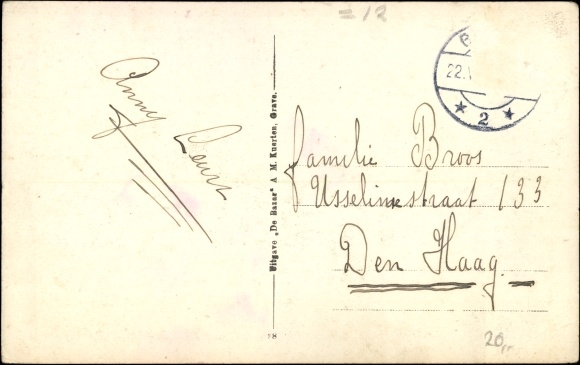 = 12
22.
2
Anny
Familie Broos
Usselinxstraat 133
Den Haag.
Uitgave „De Bazar" A M. Kuerten, Grave.
78
20,-